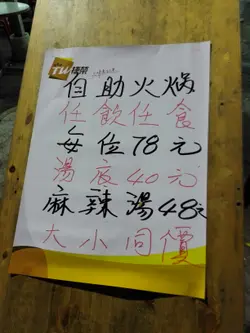 TW
自助火焗
任飲任食
每位78元
湯底40元
麻辣湯48元
大小同價